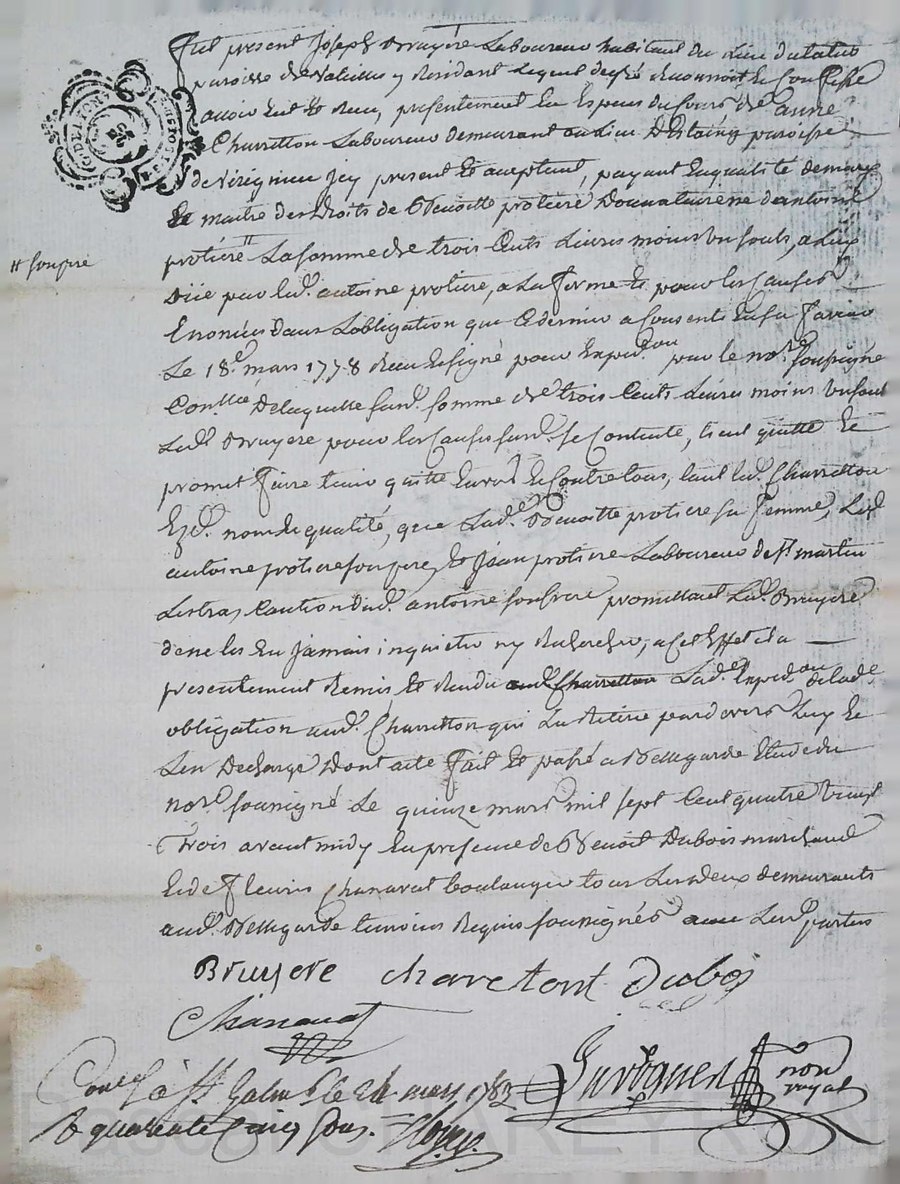 fut present Joseph Bruyere Laboureur habitant du Lieu
paroisse de y Residant Lequel de gré Reconnoit et Confesse
avoir Eut et Recu, presentement En Especes du Cours de
Charretton Laboureur demeurant au Lieu paroisse
de virignieu jcy present et aceptant, payant En qualité de
Et maitre des Droits de Benoitte protiere Donnataire de antoine
protiere Lasomme de trois Cents Livres moins un souls, a Luy
son pere
Düe par Led. antoine protiere, a La forme Et pour les Causes
Enoncées dans Lobligation que Ce dernier a Consenti En sa faveur
Le 18e. mars 1778 Recu et signé pour Expedon par le nore. soussigné
Conllée De laquelle susd. somme de trois Cents Livres moins un soul
Led. Bruyere pour les Causes susd. se Contente, Et
promet faire tenir quitte Envers Et Contre tous, tant Led. Charretton
Ezd. nom de qualité, que Lade. Benoitte protiere sa femme, Led.
antoine protiere son pere, Et Jean protiere Laboureur de st. martin
Lestra, Caution dud. antoine son frere promettant Led. Bruyere
de ne les En jamais inquieter ny Rechercher, a Cet Effet il a
presentement Remis Et Rendu aud. Charretton Lade. Expedon de lade.
obligation aud. Charretton qui La Retiré pardevers Luy Et
Len Decharge Dont acte fait Et passé a Bellegarde Etude du
nore. soussigné Le quinze mars mil sept Cent quatre vingt
trois avant midy En presence de Benoit Dubois marchand
Et de fleurie Chanavat boulanger tous Les deux demeurants
aud. Bellegarde temoins Requis soussignés avec Les parties
Bruyere charetont Dubois
Chanavat
not royal
Con.lé à st. Galm.r le 24. mars 1783
R quarante Cinq sous.